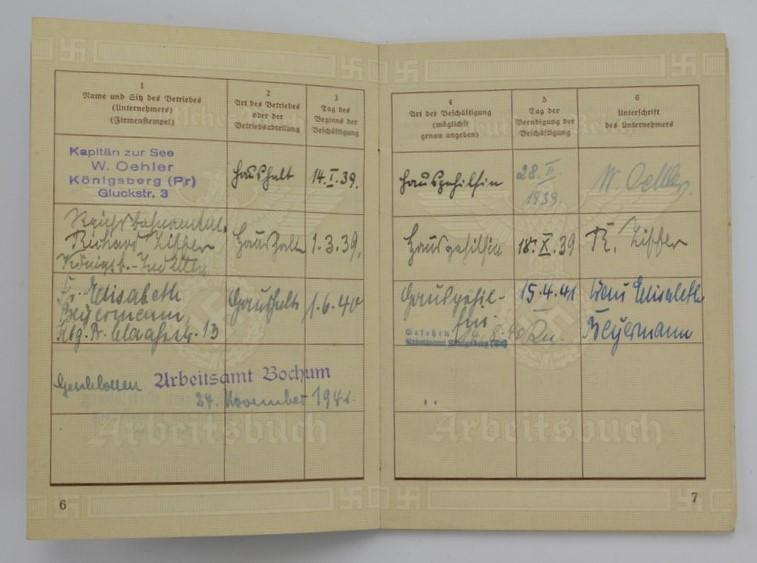 1
Name und Sitz des Betriebes
(Unternehmers)
(Firmenstempel)
2
Art des Betriebes
oder der
Betriebsabteilung
3
Tag des
Beginns der
Beschäftigung
Kapitän zur See
W. Oehler
Königsberg (Pr)
Gluckstr. 3
Haushalt
14.I.39.
Richard
Haushalt
1.3.39.
Fr. Elisabeth
Beyermann
Kbg. Pr. 13
Haushalt
1.6.40
Geschlossen Arbeitsamt Bochum
24. November 194
Arbeitsbuch
6
4
Art der Beschäftigung
(möglichst
genau angeben)
5
Tag der
Beendigung der
Beschäftigung
6
Unterschrift
des Unternehmers
Hausgehilfin
28.II
1939.
W. Oehler.
Hausgehilfin
18.X.39
R.
Hausgehil-
fin.
15.4.41
Frau Elisabeth
Beyermann
Gesehen
Arbeitsamt Königsberg (Pr)
Arbeitsbuch
7